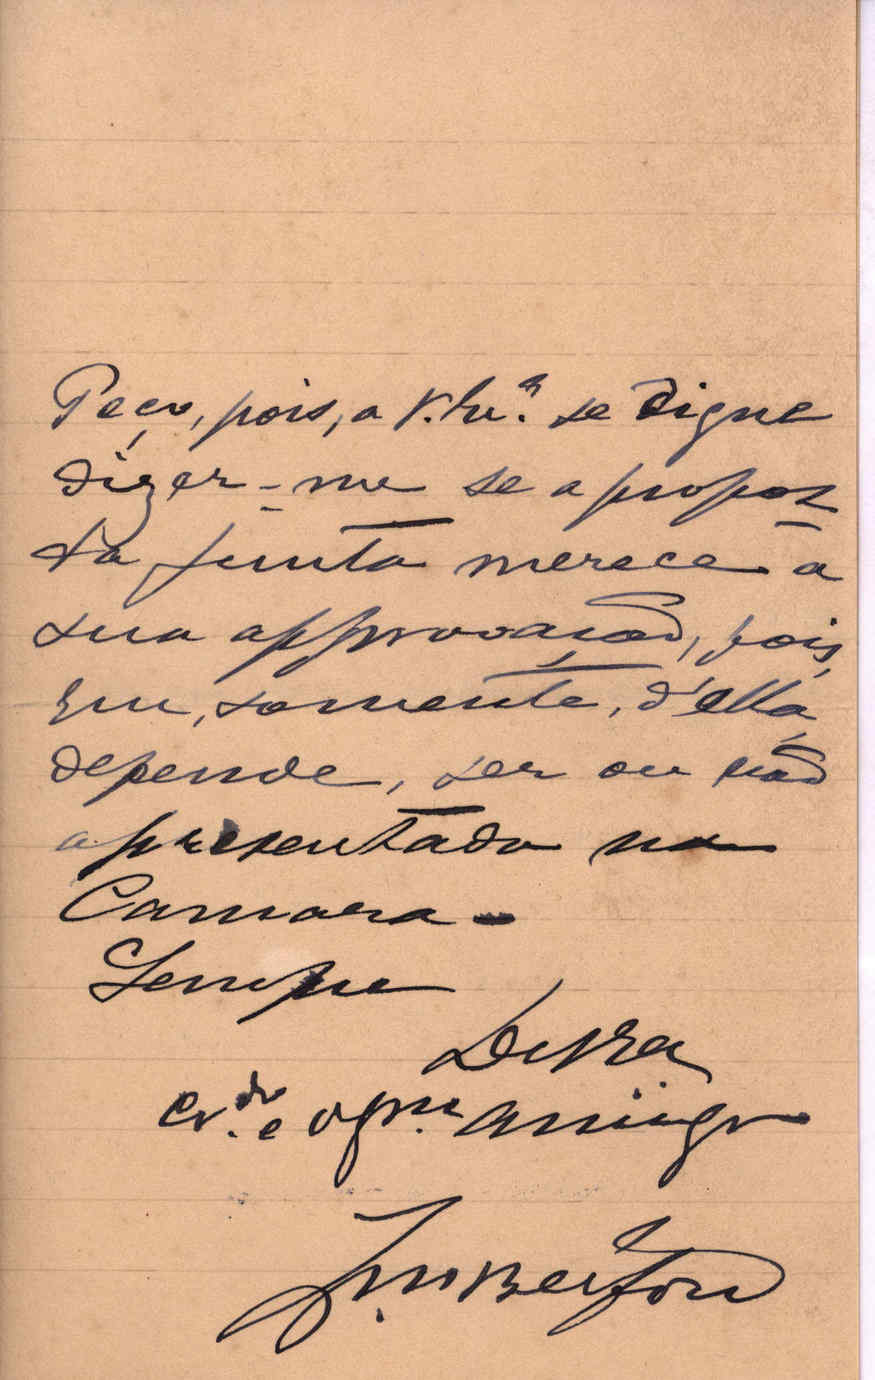 Peço, pois, a V. Ex.ª se digne
dizer-me se a propos-
ta junta merece a
sua approvação, pois,
que, somente, d'ella,
depende, ser ou não
apresentado na
Camara -
Sempre
De V. Exa
cr.do e obr.mo amigo